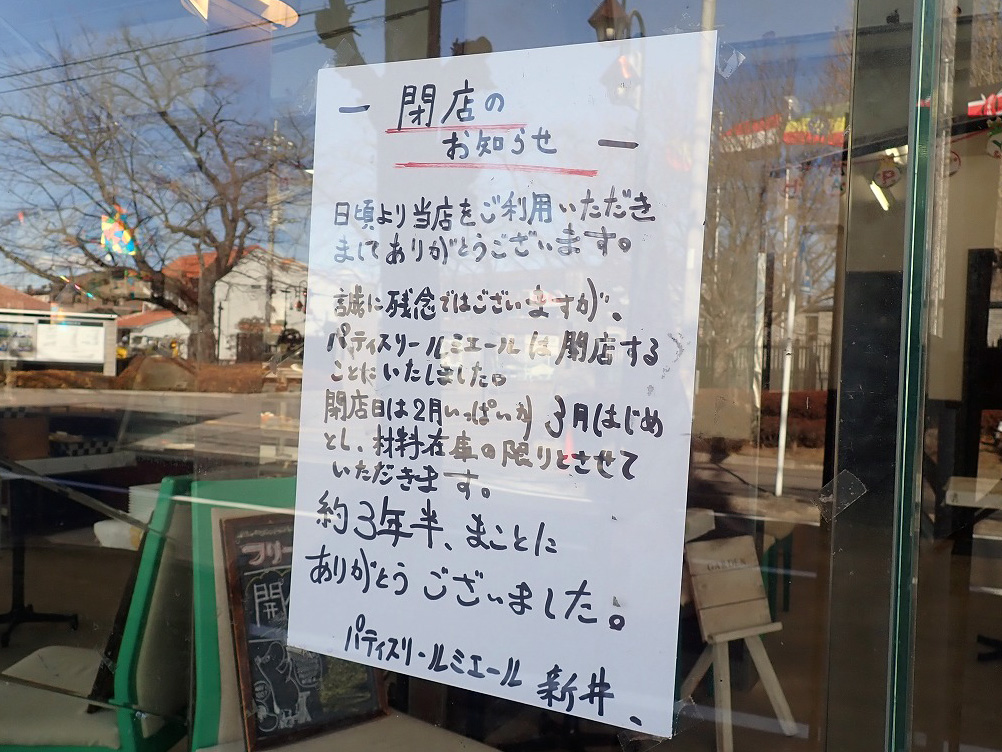 ー 閉店の
お知らせ ー
日頃より当店をご利用いただき
ましてありがとうございます。
誠に残念ではございますが、
パティスリールミエールは閉店する
ことにいたしました。
閉店日は2月いっぱいか 3月はじめ
とし、材料在庫の限りとさせて
いただきます。
約3年半、まことに
ありがとうございました。
パティスリールミエール 新井、
フリー
開
GARDEN